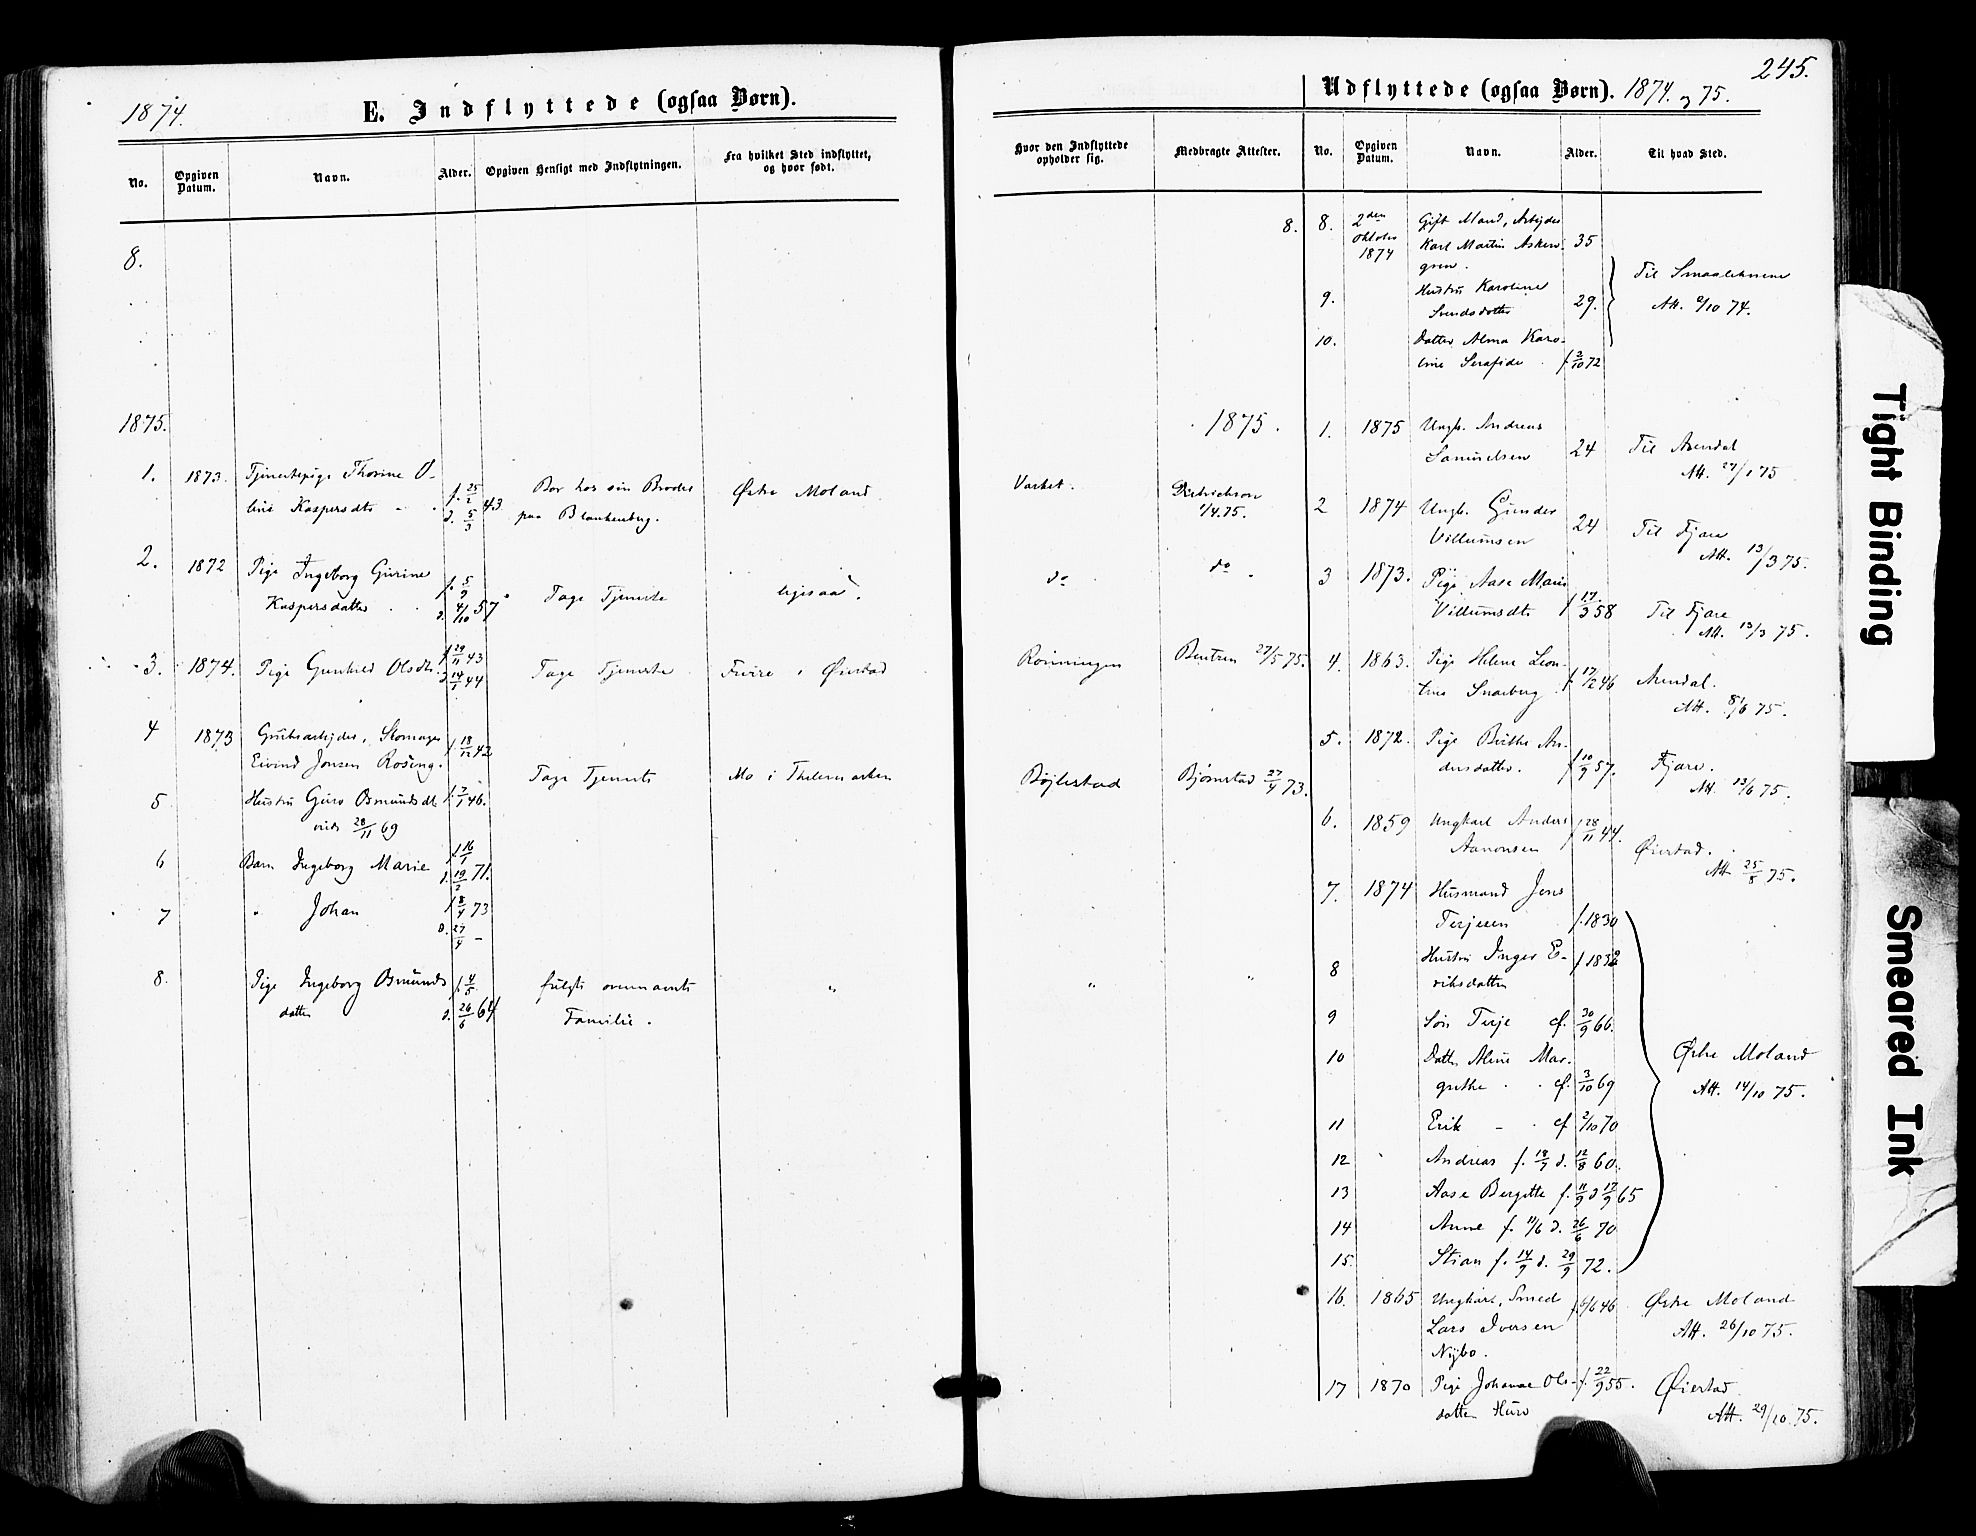 1874.
E. Indflyttede (ogsaa Børn).
No.
Opgiven Datum.
Navn.
Alder.
Opgiven Hensigt med Indflytningen.
Fra hvilket Sted indflyttet, og hvor født.
8.
1875.
1. 1873. Tjenestepige Thorine O-
line Kaspersdtr f. 25/2 d. 5/3 43 Bor hos sin Broder Østre Moland
paa Blankenberg.
2. 1872 Pige Ingeborg Gurine
Kaspersdatter f. 5/9 d. 4/10 57 Tage Tjeneste ligesaa.
3. 1874. Pige Gunhild Olsdtr. f. 29/11 43 d. 14/1 44 Tage Tjeneste Fivire i Øiestad
4 1873 Grubearbeider, Skomager
Eivind Jonsen Roseng. f. 18/12 42
Tage Tjeneste Mo i Thelemarken
5 Hustru Guro Osmundsdtr f. 7/1 46.
viede 28/11 69
6 Barn Ingeborg Marie f. 16/1 d. 19/2 71.
7 " Johan f. 8/4 73 d. 27/4 -
8. Pige Ingeborg Osmunds f. 4/5 fulgte ovennævnte "
datter d. 26/6 64 Familie.
245.
Udflyttede (ogsaa Børn). 1874. og 75.
Hvor den Indflyttede opholder sig.
Medbragte Attester.
No.
Opgiven Datum.
Navn.
Alder.
Til hvad Sted.
8. 8. 2den Gift Mand, Arbeider
Oktober Karl Martin Asken- 35
1874 gren.
9. Hustru Karoline
Svendsdatter 29. Til Smaalehnene
Att. 2/10 74.
10. Datter Alma Karo-
line Serafide f. 2/10 72
1875. 1. 1875 Ungk. Andreas
Samuelsen 24 Til Arendal
Att. 27/1 75
Varket. Dietrichson
1/4.75.
2 1874 Ungk. Gunder
Villumsen 24 Til Fjære
Att. 13/3 75.
do do. 3 1873. Pige Aase Marie
Villumsdtr f. 17/3 58 Til Fjære
Att. 13/3 75.
Rønningen Bentzen 27/5 75. 4. 1863. Pige Helene Leon-
tine Snarberg f. 17/2 46 Arendal.
Att. 8/6 75.
5. 1872. Pige Birthe An-
dersdatter. f. 10/9 57. Fjære.
Att. 13/6 75.
Bøjlestad Bjørnstad 27/4 73.
6. 1859 Ungkarl Anders f. 28/11 44.
Aanonsen Øiestad.
Att. 25/8 75.
7. 1874 Husmand Jens
Terjesen f. 1830
" " 8 Hustru Inger E- f. 1832
riksdatter
9 Søn Terje f. 30/9 66.
10 Datter Aline Mar-
grethe f. 3/10 69 Østre Moland
Att. 14/10 75.
11 Erik - f 2/10 70
12 Andreas f. 18/7 d. 12/8 60.
13 Aase Bergitte f. 11/9 d 17/9 65
14 Anne f. 11/6 d. 26/6 70
15. Stian f. 14/9 d. 29/9 72.
16. 1865 Ungkarl, Smed f. 6/6 46. Østre Moland
Lars Iversen Att. 26/10 75.
Nybo.
17 1870 Pige Johanne Ols- f. 22/9 55. Øiestad
datter Huro Att. 29/10.75.
Tight Binding
Smeared Ink